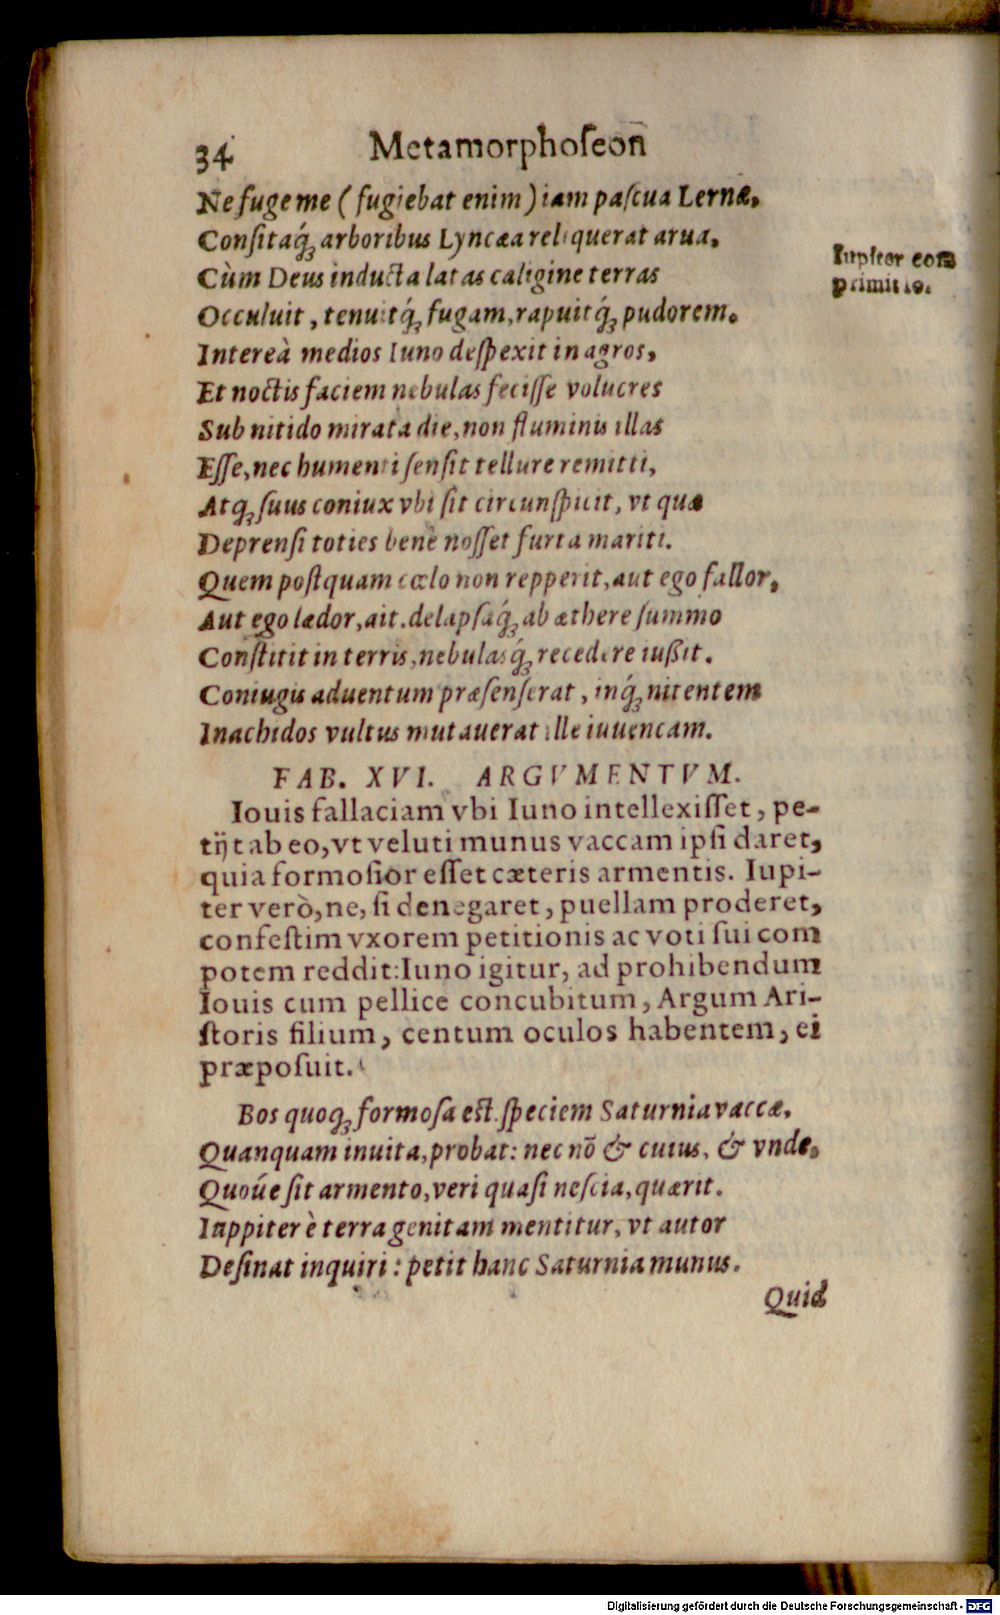 34 Metamorphoſeon
Ne fuge me (fugiebat enim) iam paſcua Lernæ,
Conſitaq́; arboribus Lyncæa reliquerat arua,
Iupiter com
Cùm Deus inducta latas caligine terras
primit Io.
Occuluit, tenuitq́; fugam, rapuitq́; pudorem.
Intereà medios Iuno deſpexit in agros,
Et noctis faciem nebulas feciſſe volucres
Sub nitido mirata die, non fluminis illas
Eſſe, nec humenti ſenſit tellure remitti,
Atq; ſuus coniux vbi ſit circunſpicit, vt quæ
Deprenſi toties benè noſſet furta mariti.
Quem poſtquam cœlo non repperit, aut ego fallor,
Aut ego lædor, ait. delapſaq́; ab æthere ſummo
Conſtitit in terris, nebulasq́; recedere iußit.
Coniugis aduentum præſenſerat, inq́; nitentem
Inachidos vultus mutauerat ille iuuencam.
FAB. XVI. ARGVMENTVM.
Iouis fallaciam vbi Iuno intellexiſſet, pe-
tijt ab eo, vt veluti munus vaccam ipſi daret,
quia formoſior eſſet cæteris armentis. Iupi-
ter verò, ne, ſi denegaret, puellam proderet,
confeſtim vxorem petitionis ac voti ſui com
potem reddit: Iuno igitur, ad prohibendum
Iouis cum pellice concubitum, Argum Ari-
ſtoris filium, centum oculos habentem, ei
præpoſuit.
Bos quoq; formoſa eſt. ſpeciem Saturnia vaccæ,
Quanquam inuita, probat: nec nõ & cuius, & vnde,
Quoúe ſit armento, veri quaſi neſcia, quærit.
Iuppiter è terra genitam mentitur, vt autor
Deſinat inquiri: petit hanc Saturnia munus.
Quid
Digitalisierung gefördert durch die Deutsche Forschungsgemeinschaft - DFG